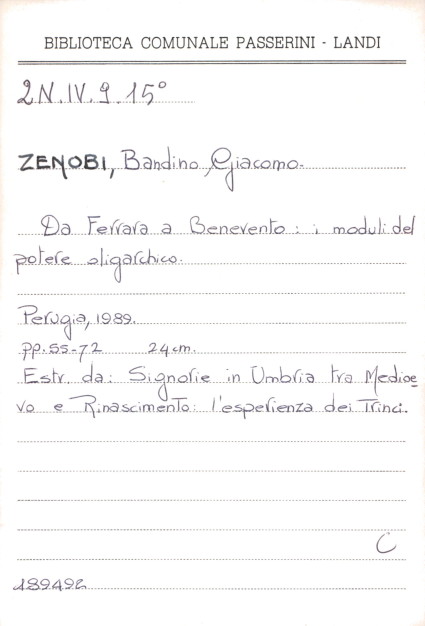 BIBLIOTECA COMUNALE PASSERINI - LANDI
2N.IV.9.15°
ZENOBI, Bandino Giacomo.
Da Ferrara a Benevento: i moduli del
potere oligarchico.
Perugia, 1989.
pp. 55-72 24 cm.
Estr. da: Signorie in Umbria tra Medioe
vo e Rinascimento: l'esperienza dei Trinci.
C
189492